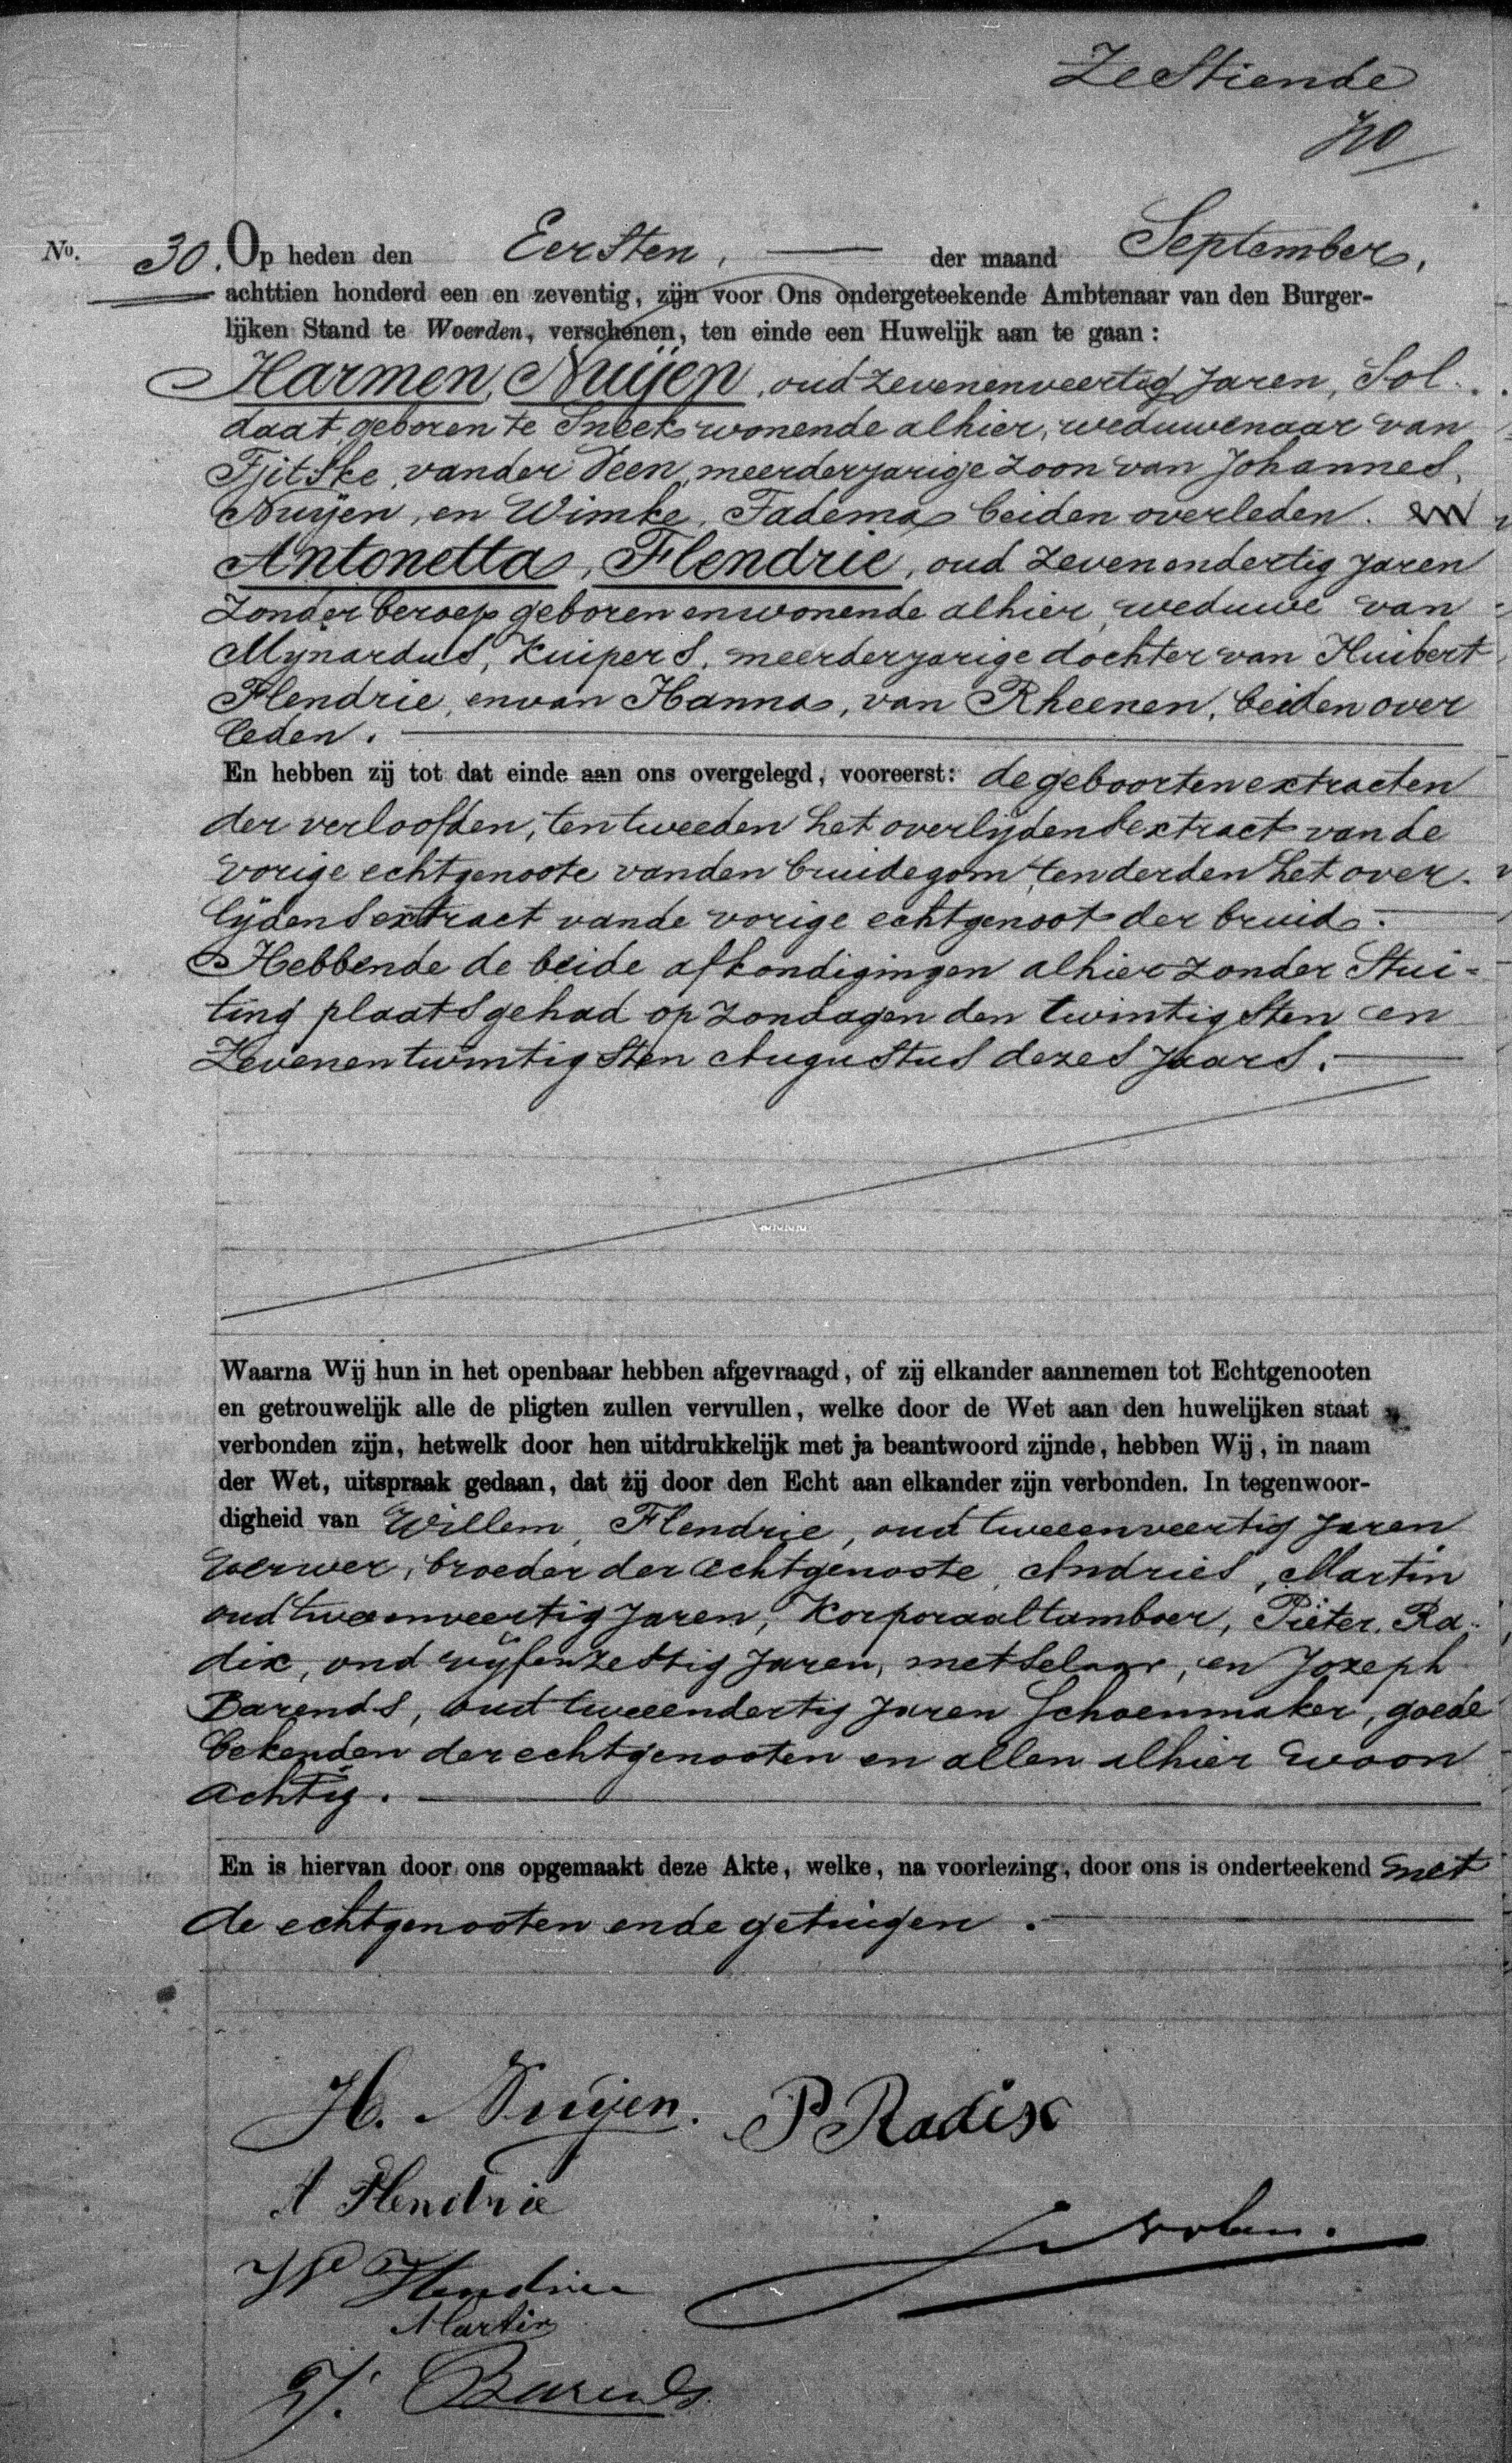 Zestiende
No. 30. Op heden den Eersten, der maand September,
achttien honderd een en zeventig, zijn voor Ons ondergeteekende Ambtenaar van den Burger-
lijken Stand te Woerden, verschenen, ten einde een Huwelijk aan te gaan:
Harmen, Nuijen, oud zevenenveertig Jaren, Sol-
daat, geboren te Sneek wonende alhier, weduwenaar van
Tjitske, vander Veen, meerderjarige zoon van Johannes,
Nuijen, en Wimke, Tadema, beiden overleden. en
Antonetta, Flendrie, oud zevenendertig Jaren
zonder beroep geboren en wonende alhier, weduwe van
Mijnardus, Kuipers, meerderjarige dochter van Huibert
Flendrie, en van Hanna, van Rheenen, beiden over
leden.
En hebben zij tot dat einde aan ons overgelegd, vooreerst: de geboorten extracten
der verloofden, ten tweeden het overlijdens extract van de
vorige echtgenoote van den bruidegom, ten derden het over-
lijdens extract van de vorige echtgenoot der bruid.
Hebbende de beide afkondigingen alhier zonder Stui-
ting plaats gehad op Zondagen den twintigsten en
Zevenentwintigsten Augustus dezes Jaars.
Waarna Wij hun in het openbaar hebben afgevraagd, of zij elkander aannemen tot Echtgenooten
en getrouwelijk alle de pligten zullen vervullen, welke door de Wet aan den huwelijken staat
verbonden zijn, hetwelk door hen uitdrukkelijk met ja beantwoord zijnde, hebben Wij, in naam
der Wet, uitspraak gedaan, dat zij door den Echt aan elkander zijn verbonden. In tegenwoor-
digheid van Willem, Flendrie, oud tweeenveertig Jaren
verwer, broeder der echtgenoote, Andries, Martin
oud tweeenveertig Jaren, Korporaal tamboer, Pieter, Ra-
dix, oud vijfenzestig Jaren, metselaar, en Jozeph
Barends, oud tweeendertig Jaren Schoenmaker, goede
bekenden der echtgenooten en allen alhier woon
achtig.
En is hiervan door ons opgemaakt deze Akte, welke, na voorlezing, door ons is onderteekend met
de echtgenooten en de getuigen.
H. Nuijen. P Radix
A Flendrie
W Flendrie
Martin
J. Barends